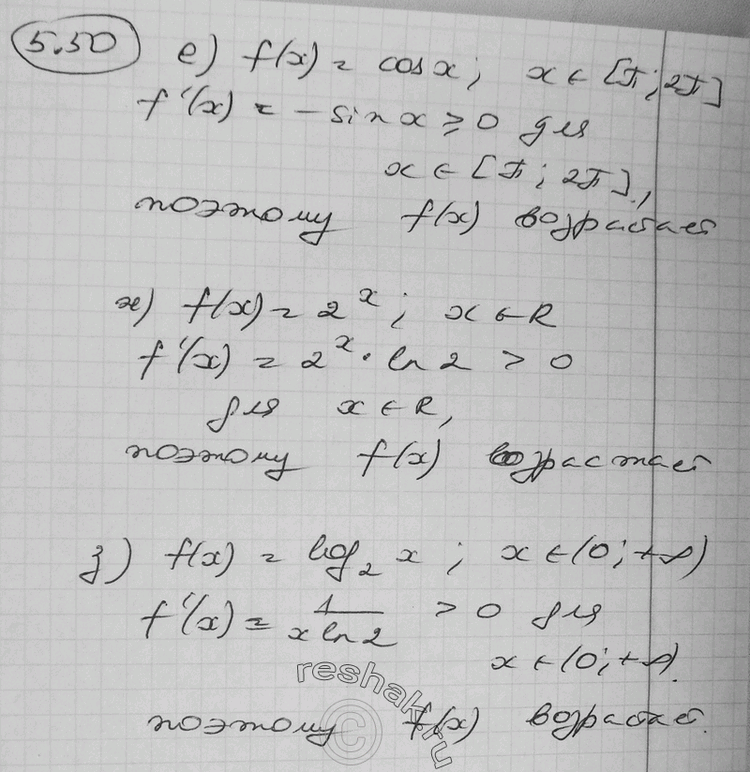 5.50 е) f(x) = cos x; x ∈ [π; 2π]
f'(x) = - sin x ≥ 0 для
x ∈ [π; 2π],
поэтому f(x) возрастает
ж) f(x) = 2^x; x ∈ R
f'(x) = 2^x · ln 2 > 0
для x ∈ R,
поэтому f(x) возрастает
з) f(x) = log_2 x; x ∈ (0; +∞)
f'(x) = 1/(x ln 2) > 0 для
x ∈ (0; +∞).
поэтому f(x) возрастает.
reshak.ru
©